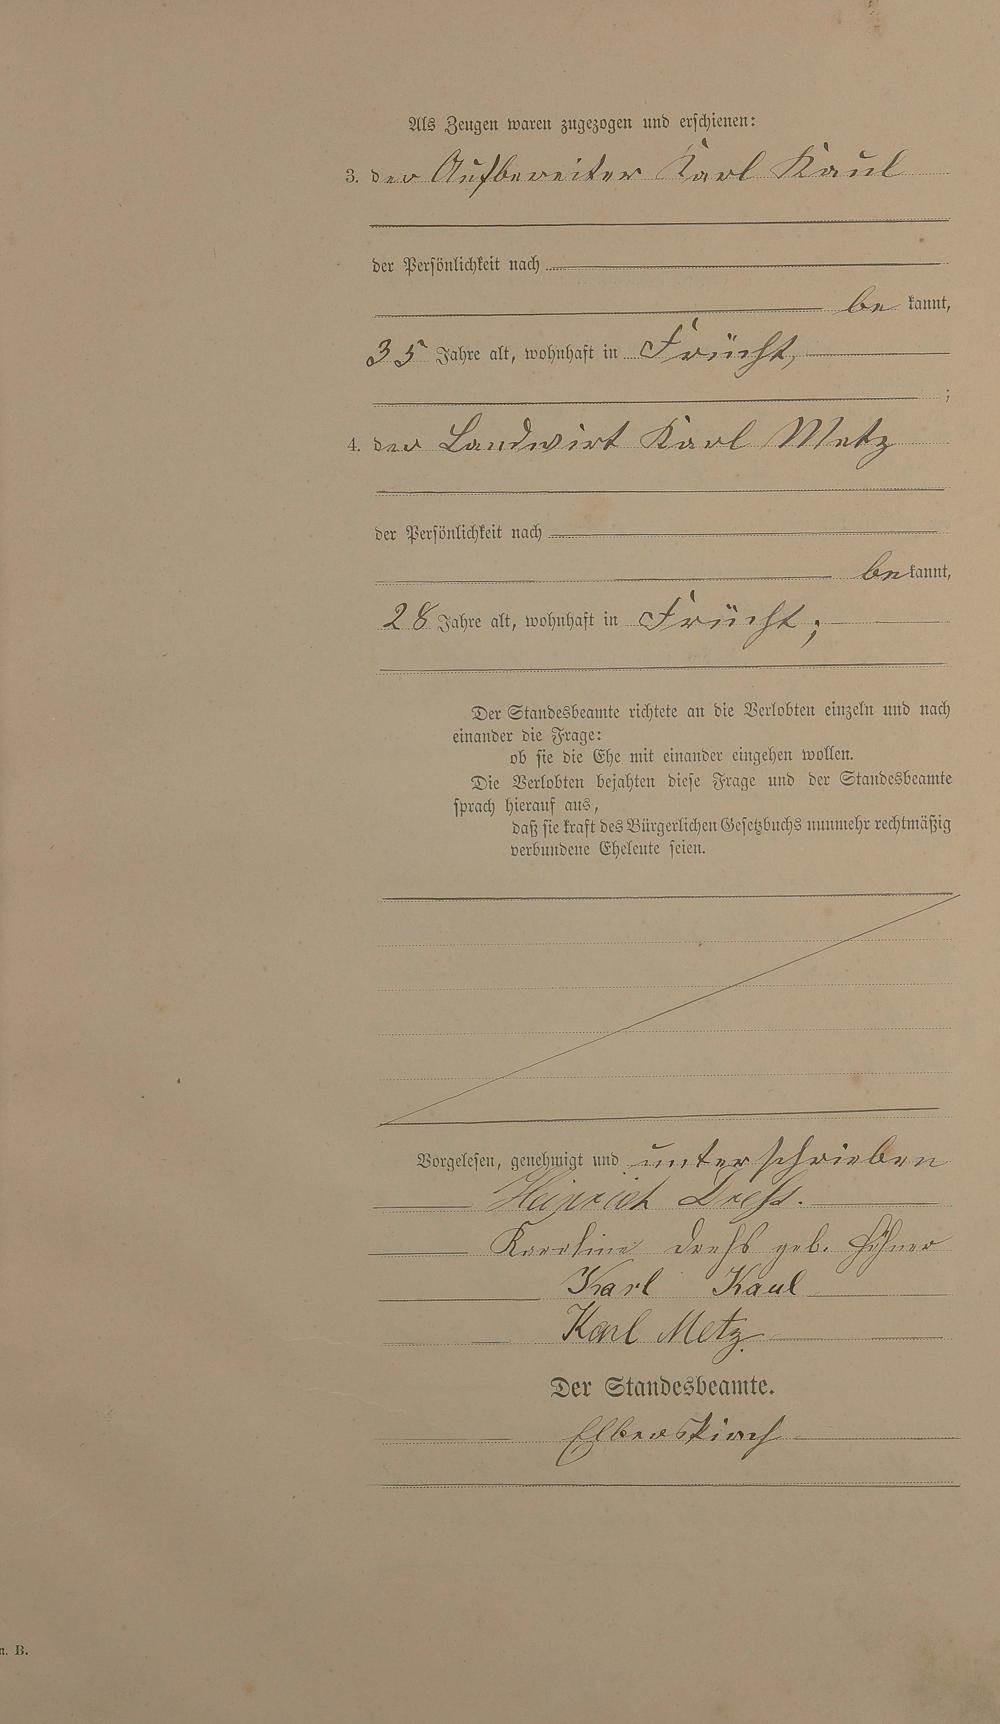 Als Zeugen waren zugezogen und erschienen:
3. der Aufbereiter Karl Kaul
der Persönlichkeit nach
be kannt,
35 Jahre alt, wohnhaft in Frücht,
;
4. der Landwirt Karl Metz
der Persönlichkeit nach
be kannt,
28 Jahre alt, wohnhaft in Frücht;
Der Standesbeamte richtete an die Verlobten einzeln und nach
einander die Frage:
ob sie die Ehe mit einander eingehen wollen.
Die Verlobten bejahten diese Frage und der Standesbeamte
sprach hierauf aus,
daß sie kraft des Bürgerlichen Gesetzbuchs nunmehr rechtmäßig
verbundene Eheleute seien.
Vorgelesen, genehmigt und unterschrieben
Heinrich
Karoline geb.
Karl Kaul
Karl Metz
Der Standesbeamte.
Elberskirch
n. B.